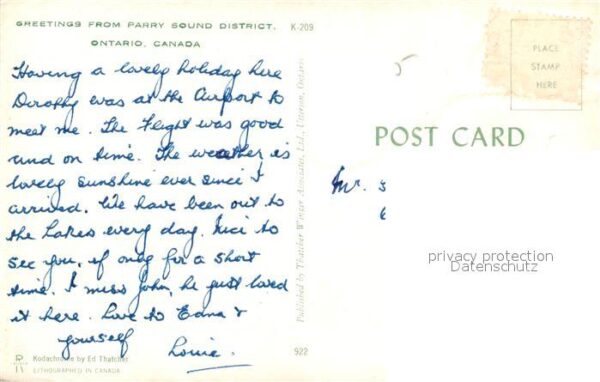 GREETINGS FROM PARRY SOUND DISTRICT, K-209
ONTARIO, CANADA
Having a lovely holiday here
Dorothy was at the Airport to
meet me. The Flight was good
and on time. The weather is
lovely sunshine ever since I
arrived. We have been out to
the Lakes every day. Nice to
see you, if only for a short
time. I miss John, he just loved
it here. Love to Edna &
yourself
Lorie.
Kodachrome by Ed Thatcher
LITHOGRAPHED IN CANADA
922
Published by Thatcher Wiman Associates, Ltd., Utterson, Ontario
5
PLACE
STAMP
HERE
POST CARD
Mr. S
privacy protection
Datenschutz